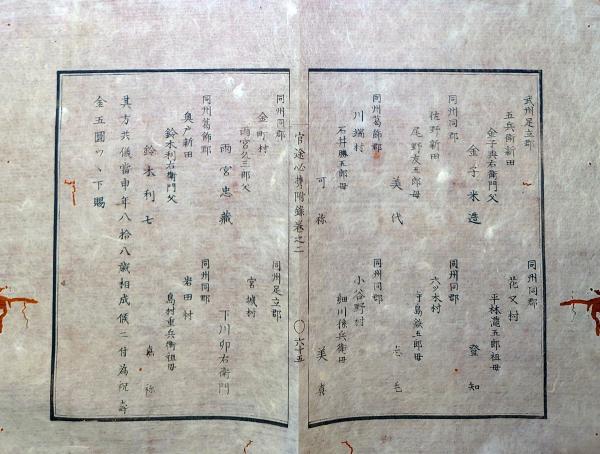 武州足立郡
五兵衞新田
金子與右衞門父
金子米造
同州同郡
花又村
平林瀧五郎祖母
登知
同州同郡
佐野新田
尾野友五郎母
美代
同州同郡
六ツ木村
寺島鉄五郎母
志毛
同州葛飾郡
川端村
石井勝五郎母
可祢
同州同郡
小谷野村
細川條兵衞母
美嘉
官途必携附録卷之二
〇六十五
同州同郡
金町村
雨宮久三郎父
雨宮忠藏
同州足立郡
宮城村
下川卯右衞門
同州葛飾郡
奥戸新田
鈴木利右衞門父
鈴木利七
同州同郡
岩田村
島村重兵衞祖母
嘉祢
其方共儀當申年八拾八歳相成候ニ付為祝壽
金五圓ツヽ下賜